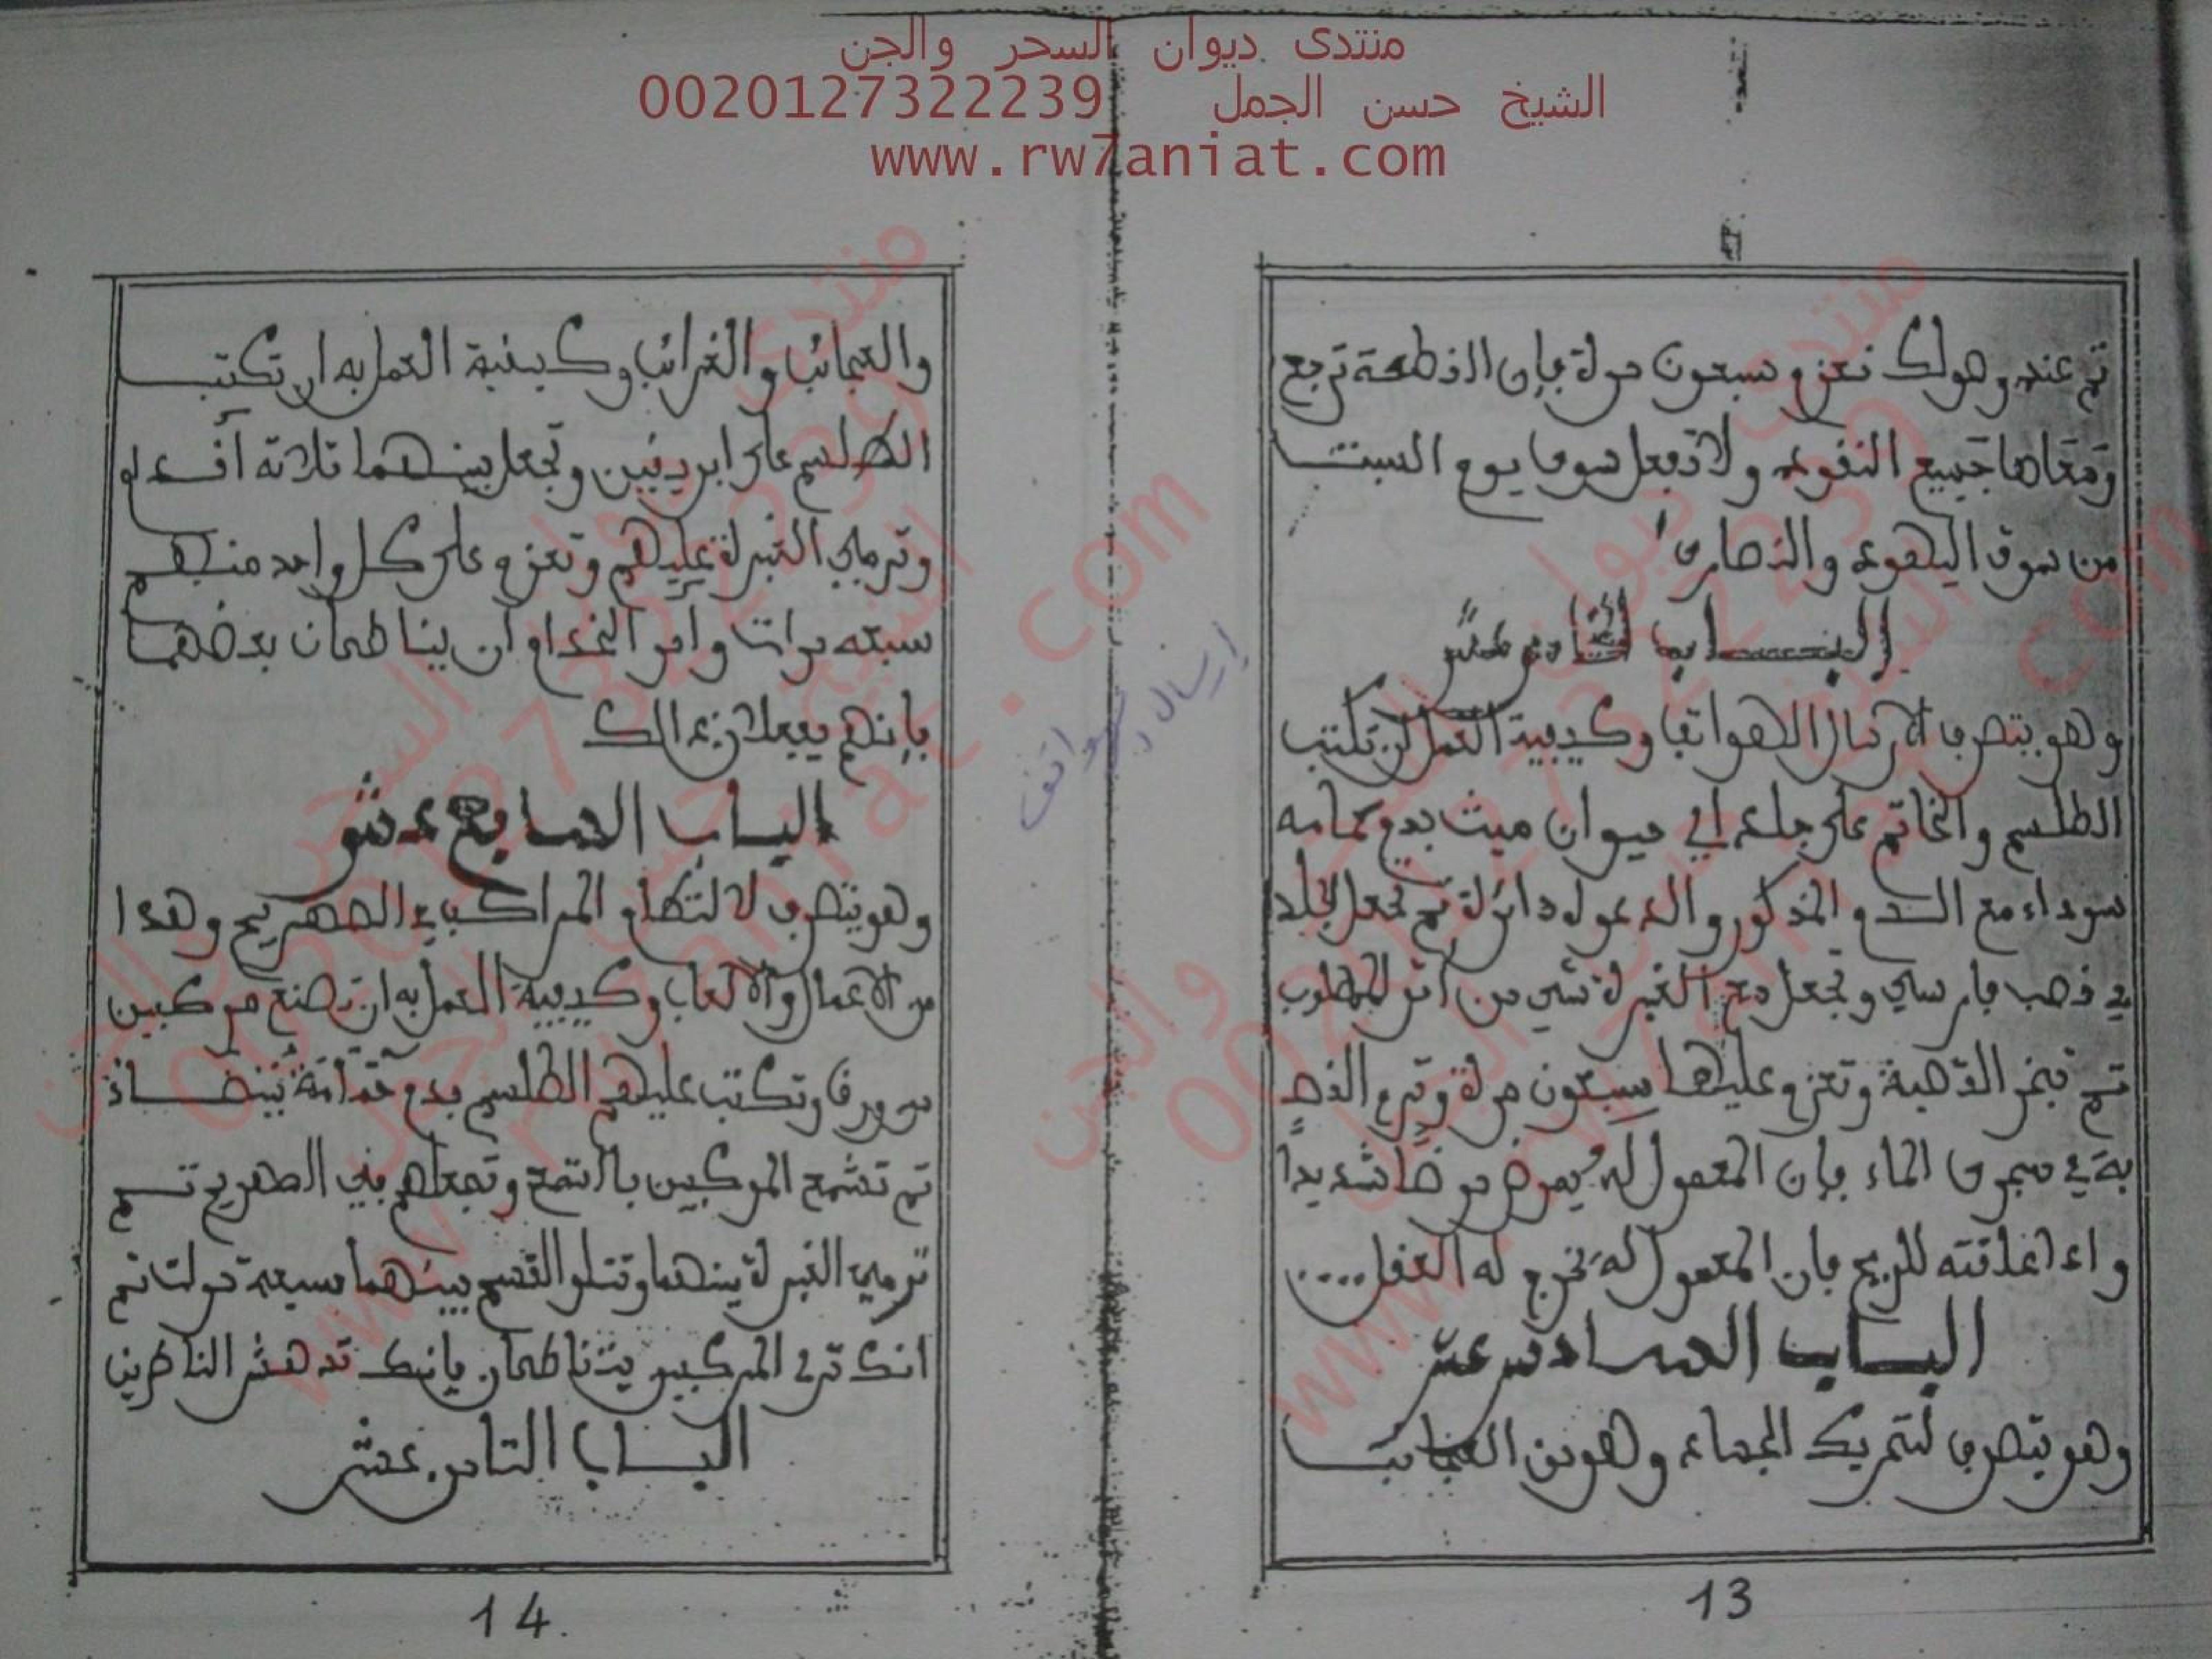 منتدى ديوان السحر والجن
الشيخ حسن الجمل 0020127322239
www.rw7aniat.com
تم عند وهولك تعزم سبعون مرة فإن القطعة ترجع
ومعاها جميع النفود ولا تفعل سوى يوم السبت
من سوق اليهود والنصارى
البــاب
وهو يتصرف لارسال الهواتف وكيفية العمل ان تكتب
الطلسم والخاتم على جلد اي حيوان ميت بدم حمامة
سوداء مع السم المذكور والدعوة دائرة تم تجعل الجلد
في قصب فارسي وتجعل مع الغبرة شي من أثر المطلوب
تم تبخر القصبة وتعزم عليها سبعون مرة وترم القصـ
بة في مجرى الماء فإن المعمول له يمرض مرضا شديدا
واذا علقته للريح فإن المعمول له يخرج له العقل....
البــاب الســادس عشر
وهو يتصرف لتحريك الجماد وهو من العجائب
13
والعجائب والغرائب وكيفية العمل به ان تكتب
الطلسم على ابريقين وتجعل بينهما تلاتة أقدام
وترمي الغبرة عليهم وتعزم على كل واحد منهم
سبعه مرات وامر الخدام ان يتناطحان بعضهما
فإنهم يفعلان ذالك
البــاب السابع عشر
وهو يتصرف لا لتطام المراكب في الصهريج وهذا
من الاعمال والالعاب وكيفية العمل به ان تصنع مركبين
من ورق وتكتب عليهم الطلسم بدم حمامة بيضــاء
تم تشمع المركبين بالشمع وتجعلهم في الصهريج تــم
ترمي الغبرة بينهما وتتلو القسم بينهما سبعة مرات تم
انك ترى المركبين يتناطحان فإنك تدهش الناظرين
البــاب التامن عشر
14
إرسال هواتف